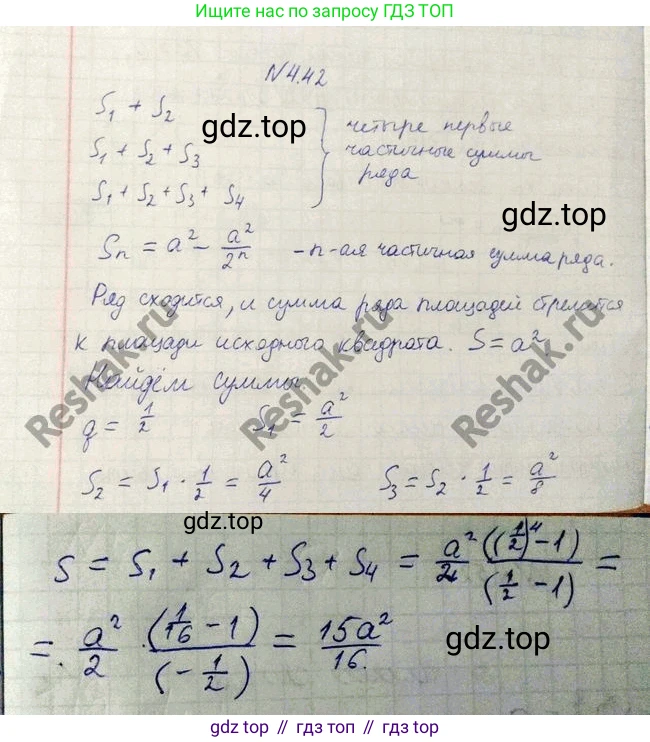 Ищите нас по запросу ГДЗ ТОП
N 4.42
S₁ + S₂
gdz.top
S₁ + S₂ + S₃
четыре первые
частичные суммы
ряда
S₁ + S₂ + S₃ + S₄
gdz.top
Sn = a² - a²/2ⁿ - n-ая частичная сумма ряда.
Ряд сходится, и сумма ряда площадей стремится
к площади исходного квадрата. S = a²
Найдём суммы
Reshak.ru
Reshak.ru
q = 1/2 S₁ = a²/2
S₂ = S₁ · 1/2 = a²/4 S₃ = S₂ · 1/2 = a²/8
gdz.top
S = S₁ + S₂ + S₃ + S₄ = a²/2 ((1/2)⁴ - 1)/(1/2 - 1) =
= a²/2 · (1/16 - 1)/(-1/2) = 15a²/16.
gdz.top
gdz.top // гдз.топ // gdz.top // гдз.топ